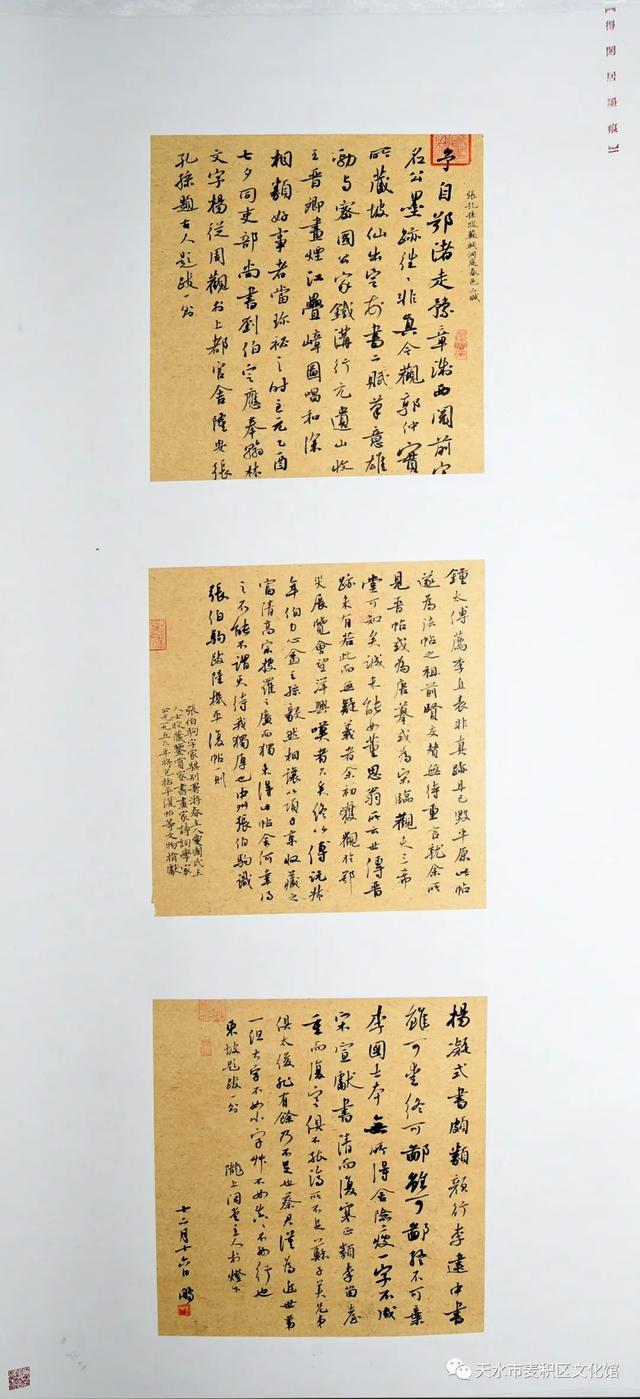 【得闲居墨痕】
张孔孙跋苏轼洞庭春色二赋
予自鄂渚走豫章涉西阁前定
名公墨跡往々非真今觀郭仲實
所藏坡仙出定州書二賦筆意雄
勁与密國公家鐵溝行元遺山收
王晉卿畫煙江疊嶂圖唱和深
相類好事者當珍祕之時至元乙酉
七夕同吏部尚書劉伯宣應奉翰林
文字楊從周觀於上都官舍隆安張
孔孫題古人题跋一則
鍾太傅薦季直表非真跡且已毁平原此帖
遂為法帖之祖前賢交替無待重言就余所
見晋帖或為唐摹或為宋臨觀夫三希
堂可知矣誠未能如董思翁所云世傳晋
跡未有若此而無疑義者余初獲觀於鄂
災展覽會望洋興嘆者久矣終以傅沅叔
年伯力心畬王孫毅然相讓以項子京收藏之
富清高宗搜羅之廣而獨未得此帖余何幸得
之不能不謂天待我獨厚也中州張伯駒識
張伯駒跋陸機平復帖一則
張伯駒字家騏别署游春主人愛國民主
人士收藏鑒賞家書畫家詩詞學家
公元一九五六年将陸機平復帖等文物捐獻
楊凝式書頗類顏行李建中書
雖可愛終可鄙雖可鄙終不可棄
李國士本無所得舍險瘦一字不成
宋宣獻書清而復寒正類李留臺
重而復寒俱不能濟所不足蘇子美兄弟
俱太俊非有餘乃不足也蔡君謨為近世第
一但大字不如小字草不如真真不如行也
東坡題跋一則
隴上閑堂主人於燈下
十二月十六日
鵬
天水市麦积区文化馆